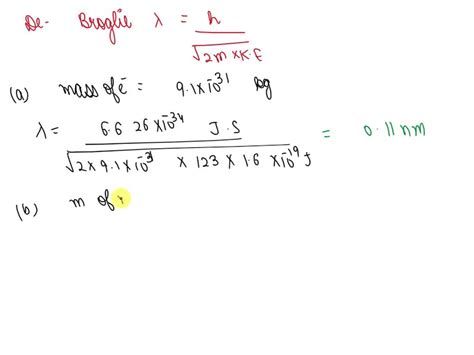 De- Broglie λ = h / √2m×K.E
(a) mass of e⁻ = 9.1×10⁻³¹ kg
λ = 6.626×10⁻³⁴ J.S / √2×9.1×10⁻³¹ × 123 × 1.6×10⁻¹⁹ J = 0.11 nm
(b) m of